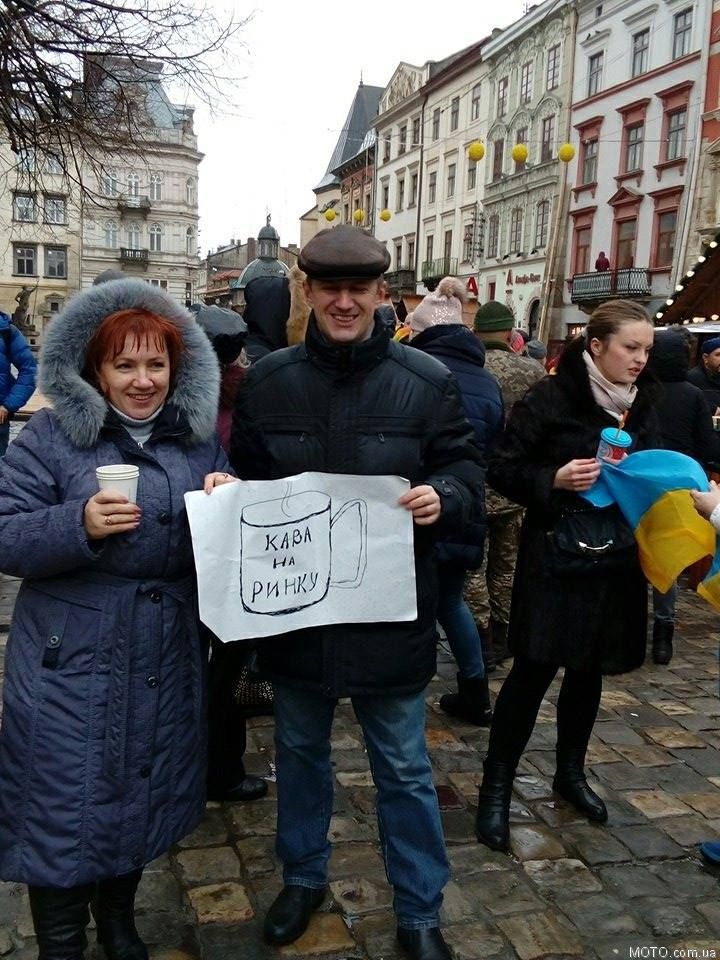 КАВА
НА
РИНКУ
MOTO.com.ua